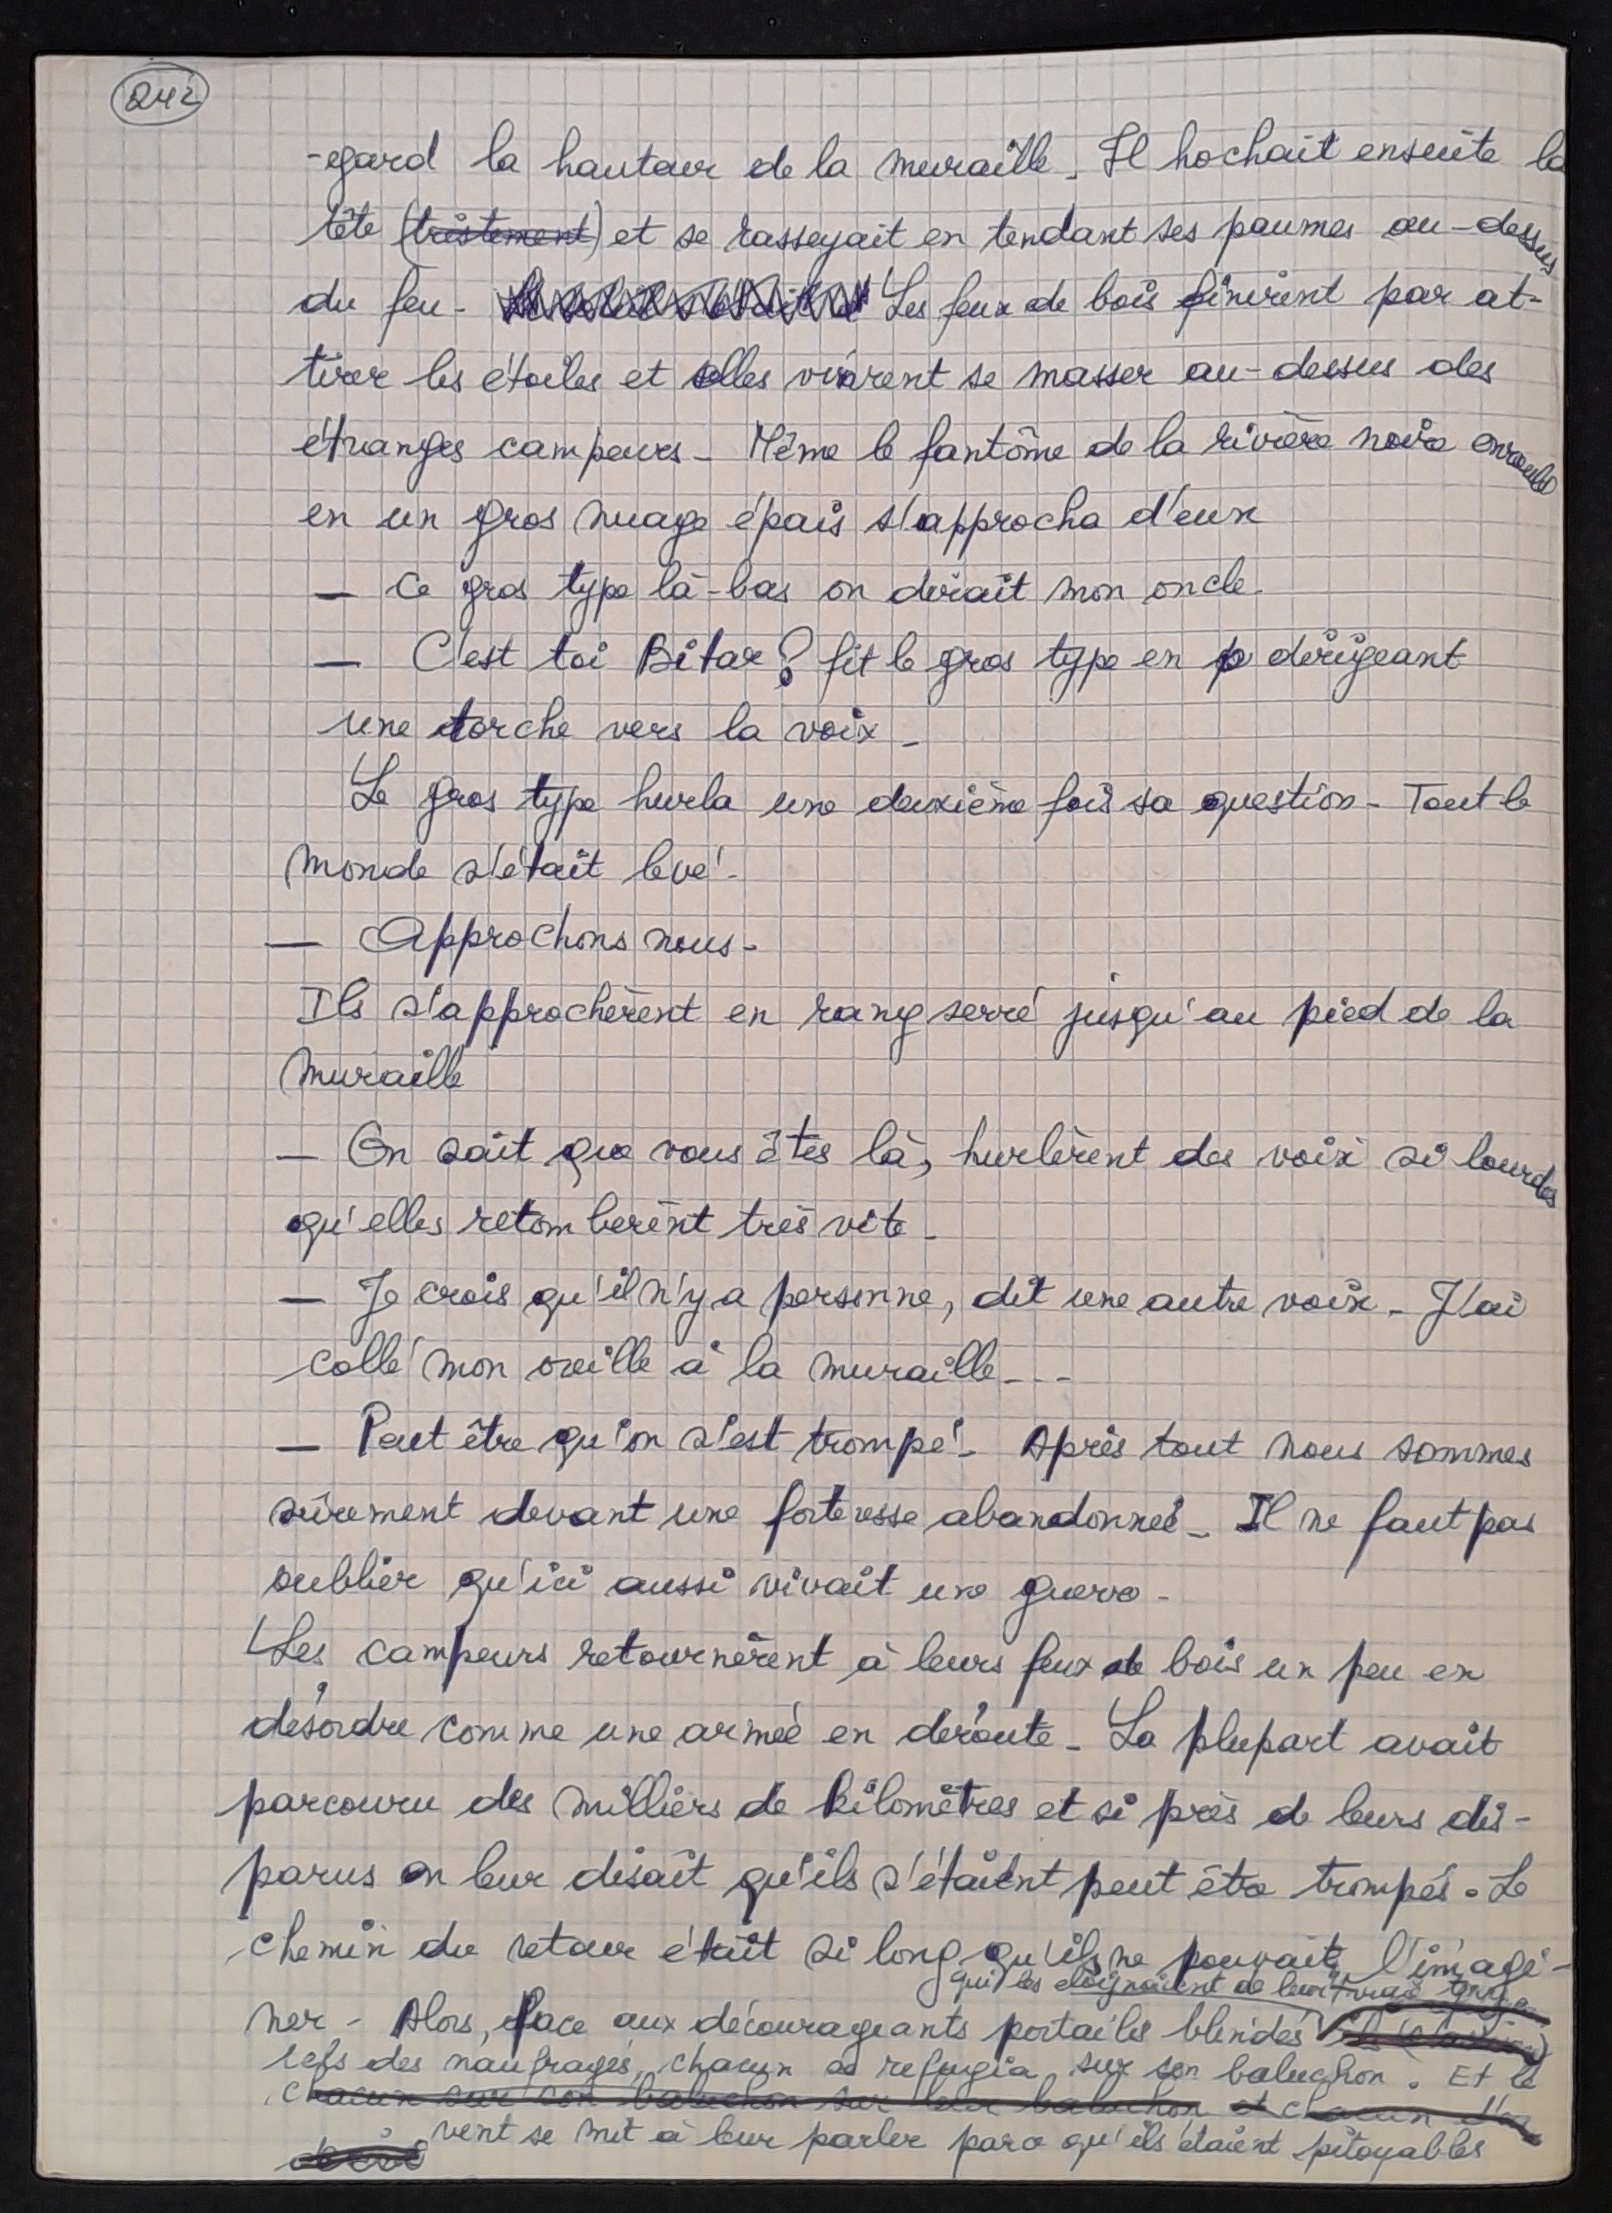 242
-egard la hauteur de la muraille. Il hochait ensuite la
tête (tristement) et se rasseyait en tendant ses paumes au-dessus
du feu. Les feux de bois finirent par at-
tirer les étoiles et elles vinrent se masser au-dessus des
étranges campeurs. Même le fantôme de la rivière noire enroulé
en un gros nuage épais s'approcha d'eux
— Ce gros type là-bas on dirait mon oncle.
— C'est toi Bitar ? fit le gros type en dirigeant
une torche vers la voix.
Le gros type hurla une deuxième fois sa question. Tout le
monde s'était levé.
— Approchons nous.
Ils s'approchèrent en rang serré jusqu'au pied de la
muraille
— On sait que vous êtes là, hurlèrent des voix si lourdes
qu'elles retombèrent très vite.
— Je crois qu'il n'y a personne, dit une autre voix. J'ai
collé mon oreille à la muraille...
— Peut être qu'on s'est trompé. Après tout nous sommes
sûrement devant une forteresse abandonnée. Il ne faut pas
oublier qu'ici aussi vivait une guerre.
Les campeurs retournèrent à leurs feux de bois un peu en
désordre comme une armée en déroute. La plupart avait
parcouru des milliers de kilomètres et si près de leurs dis-
parus on leur disait qu'ils s'étaient peut être trompés. Le
chemin du retour était si long qu'ils ne pouvait l'imagi-
qui les éloignaient de leur vrai
ner. Alors, face aux décourageants portails blindés
des naufragés, chacun se réfugia sur son baluchon. Et le
chacun sur son baluchon sur leur baluchon et chacun
vent se mit à leur parler parce qu'ils étaient pitoyables